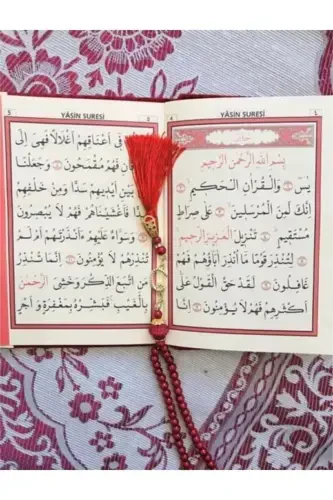 YÂSİN SURESİ
بِسْمِ اللهِ الرَّحْمٰنِ الرَّحِيمِ
يٰسٓ وَالْقُرْاٰنِ الْحَكِيمِ
اِنَّكَ لَمِنَ الْمُرْسَلِينَ عَلٰى صِرَاطٍ
مُسْتَقِيمٍ تَنْزِيلَ الْعَزِيزِ الرَّحِيمِ
لِتُنْذِرَ قَوْمًا مَٓا اُنْذِرَ اٰبَٓاؤُهُمْ فَهُمْ
غَافِلُونَ لَقَدْ حَقَّ الْقَوْلُ عَلٰٓى
اَكْثَرِهِمْ فَهُمْ لَا يُؤْمِنُونَ اِنَّا
YÂSİN SURESİ
فِٓي اَعْنَاقِهِمْ اَغْلَالًا فَهِيَ اِلَى
فَهُمْ مُقْمَحُونَ وَجَعَلْنَا
بَيْنِ اَيْدِيهِمْ سَدًّا وَمِنْ خَلْفِهِمْ
سَدًّا فَاَغْشَيْنَاهُمْ فَهُمْ لَا يُبْصِرُونَ
وَسَوَٓاءٌ عَلَيْهِمْ ءَاَنْذَرْتَهُمْ اَمْ لَمْ
تُنْذِرْهُمْ لَا يُؤْمِنُونَ اِنَّمَا تُنْذِرُ
مَنِ اتَّبَعَ الذِّكْرَ وَخَشِيَ الرَّحْمٰنَ
بِالْغَيْبِ فَبَشِّرْهُ بِمَغْفِرَةٍ وَاَجْرٍ